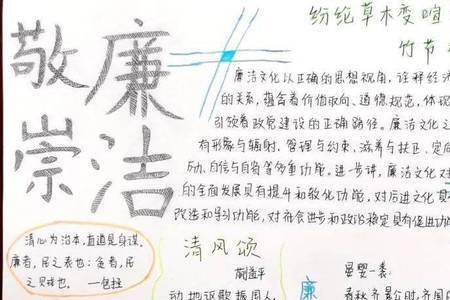 敬
廉
崇
洁
纷纶草木变暄
竹节
廉洁文化以正确的思想视角,诠释经济
的关系,蕴含着价值取向、道德规范,体现
引领着政党建设的正确路径。廉洁文化之
有形象与辐射、管理与约束、滋养与扶正、定向
励、自信与自省等多重功能。进一步讲,廉洁文化对
的全面发展具有提升和教化功能,对后进文化具
改造和引功能,对社会进步和政治稳定具有促进功能
清心为治本,直道是身谋。
廉者,民之表也;贪者,民
之贼也。 —包拯
清风颂
动地讴歌振国人
廉
晏婴一裘
春秋齐景公时,齐国